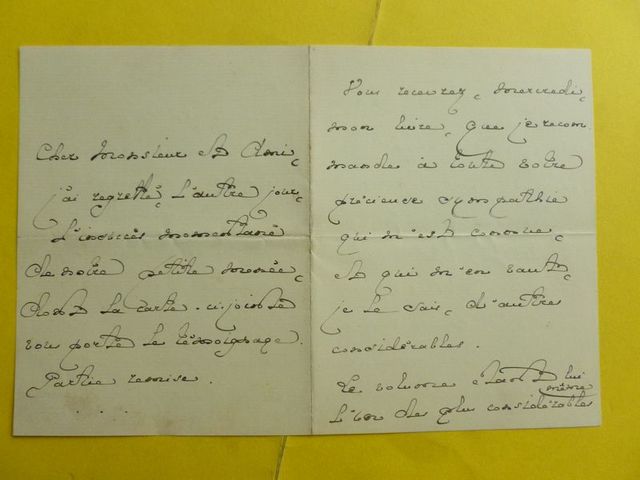 Cher Monsieur et Ami,
j'ai regretté, l'autre jour,
l'insuccès momentané
de notre petite
dont la carte ci-jointe
vous porte le témoignage.
Partie remise.
. . .
Vous recevrez, mercredi,
mon livre, que je recom
mande à toute votre
précieuse sympathie
qui m'est connue,
et qui m'en vaut,
je le sais, d'autres
considérables.
Le volume étant lui
même
l'un des plus considérables